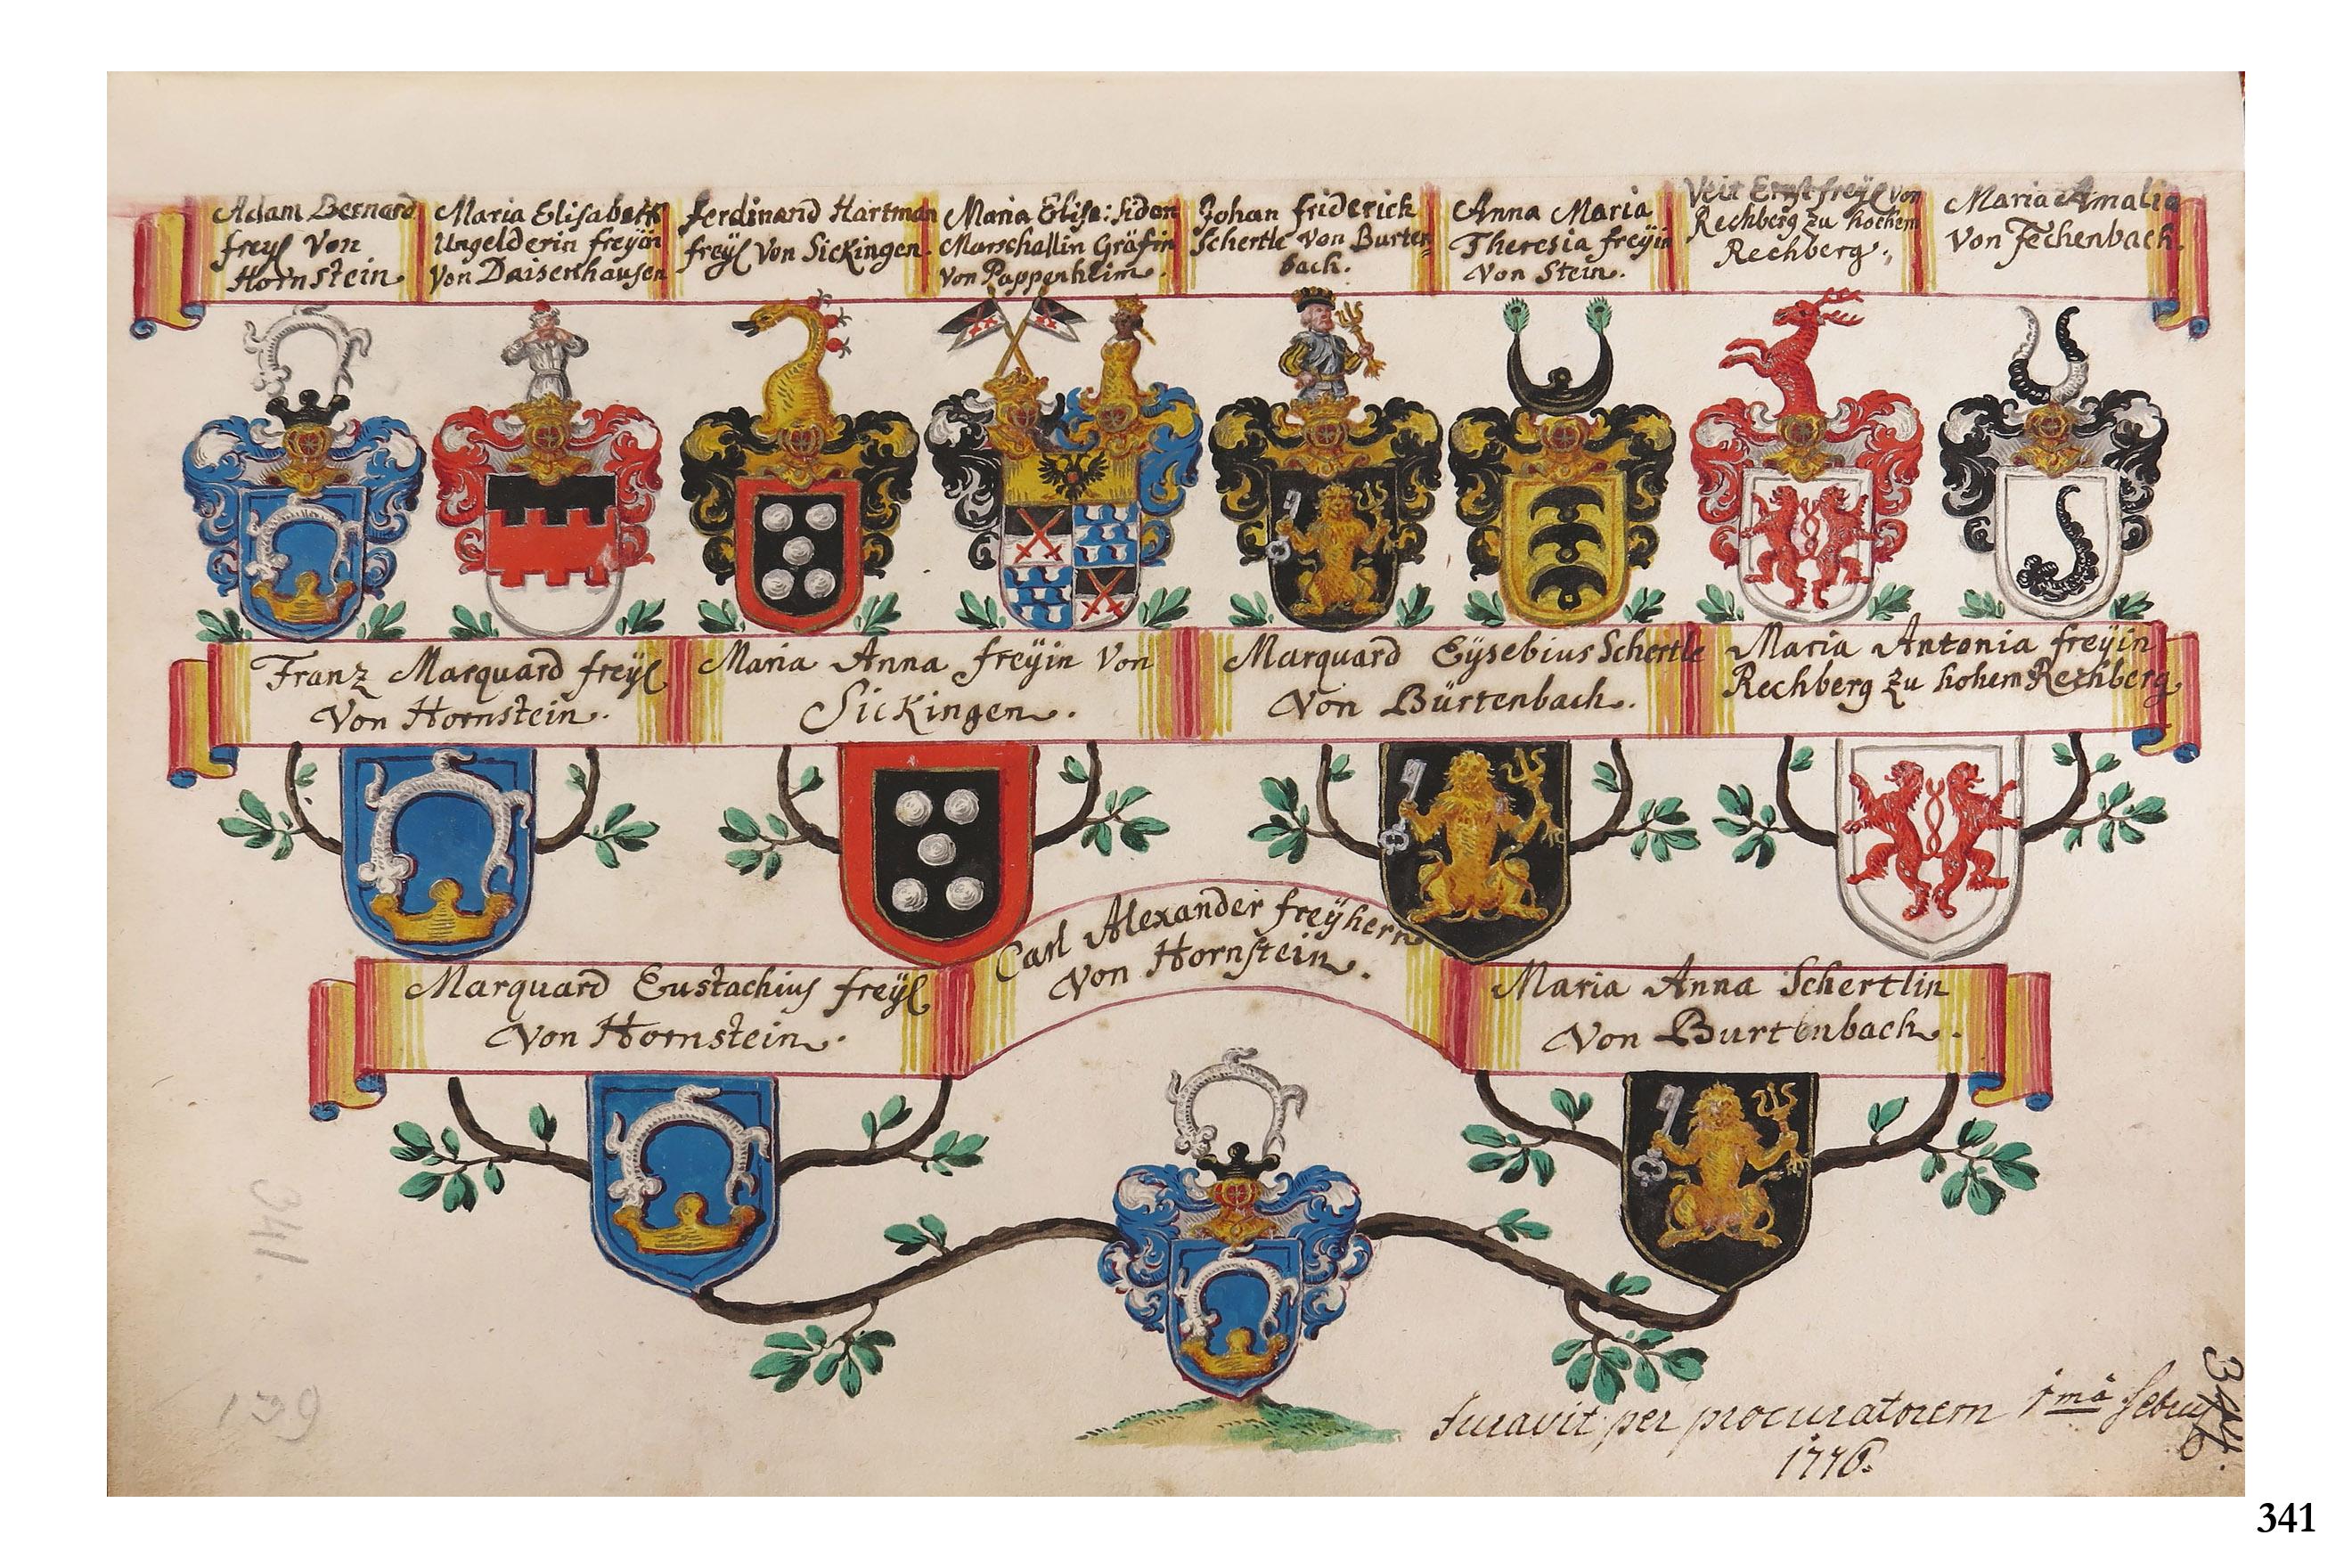 Adam Bernard
freyl Von
Hornstein
Maria Elisabeth
Ungelderin freyin
Von Daisenhausen
ferdinand Hartman
freyl Von Sickingen.
Maria Elise: Sidon
Marschallin Gräfin
von Pappenheim.
Johan friderick
Schertle von Burten=
bach.
Anna Maria
Theresia freyin
Von Stein.
Veit Ernst freyl von
Rechberg zu hochem
Rechberg.
Maria Amalia
Von Fechenbach.
Franz Marquard freyl
Von Hornstein.
Maria Anna freyin Von
Sickingen.
Marquard Eysebius Schertle
Von Bürtenbach.
Maria Antonia freyin
Rechberg zu hohem Rechberg
Carl Alexander freyhern
Von Hornstein.
Marquard Eustachius freyl
Von Hornstein.
Maria Anna Schertlin
Von Burtenbach.
341
139
Juravit per procuratorem 1mâ
1776.
341